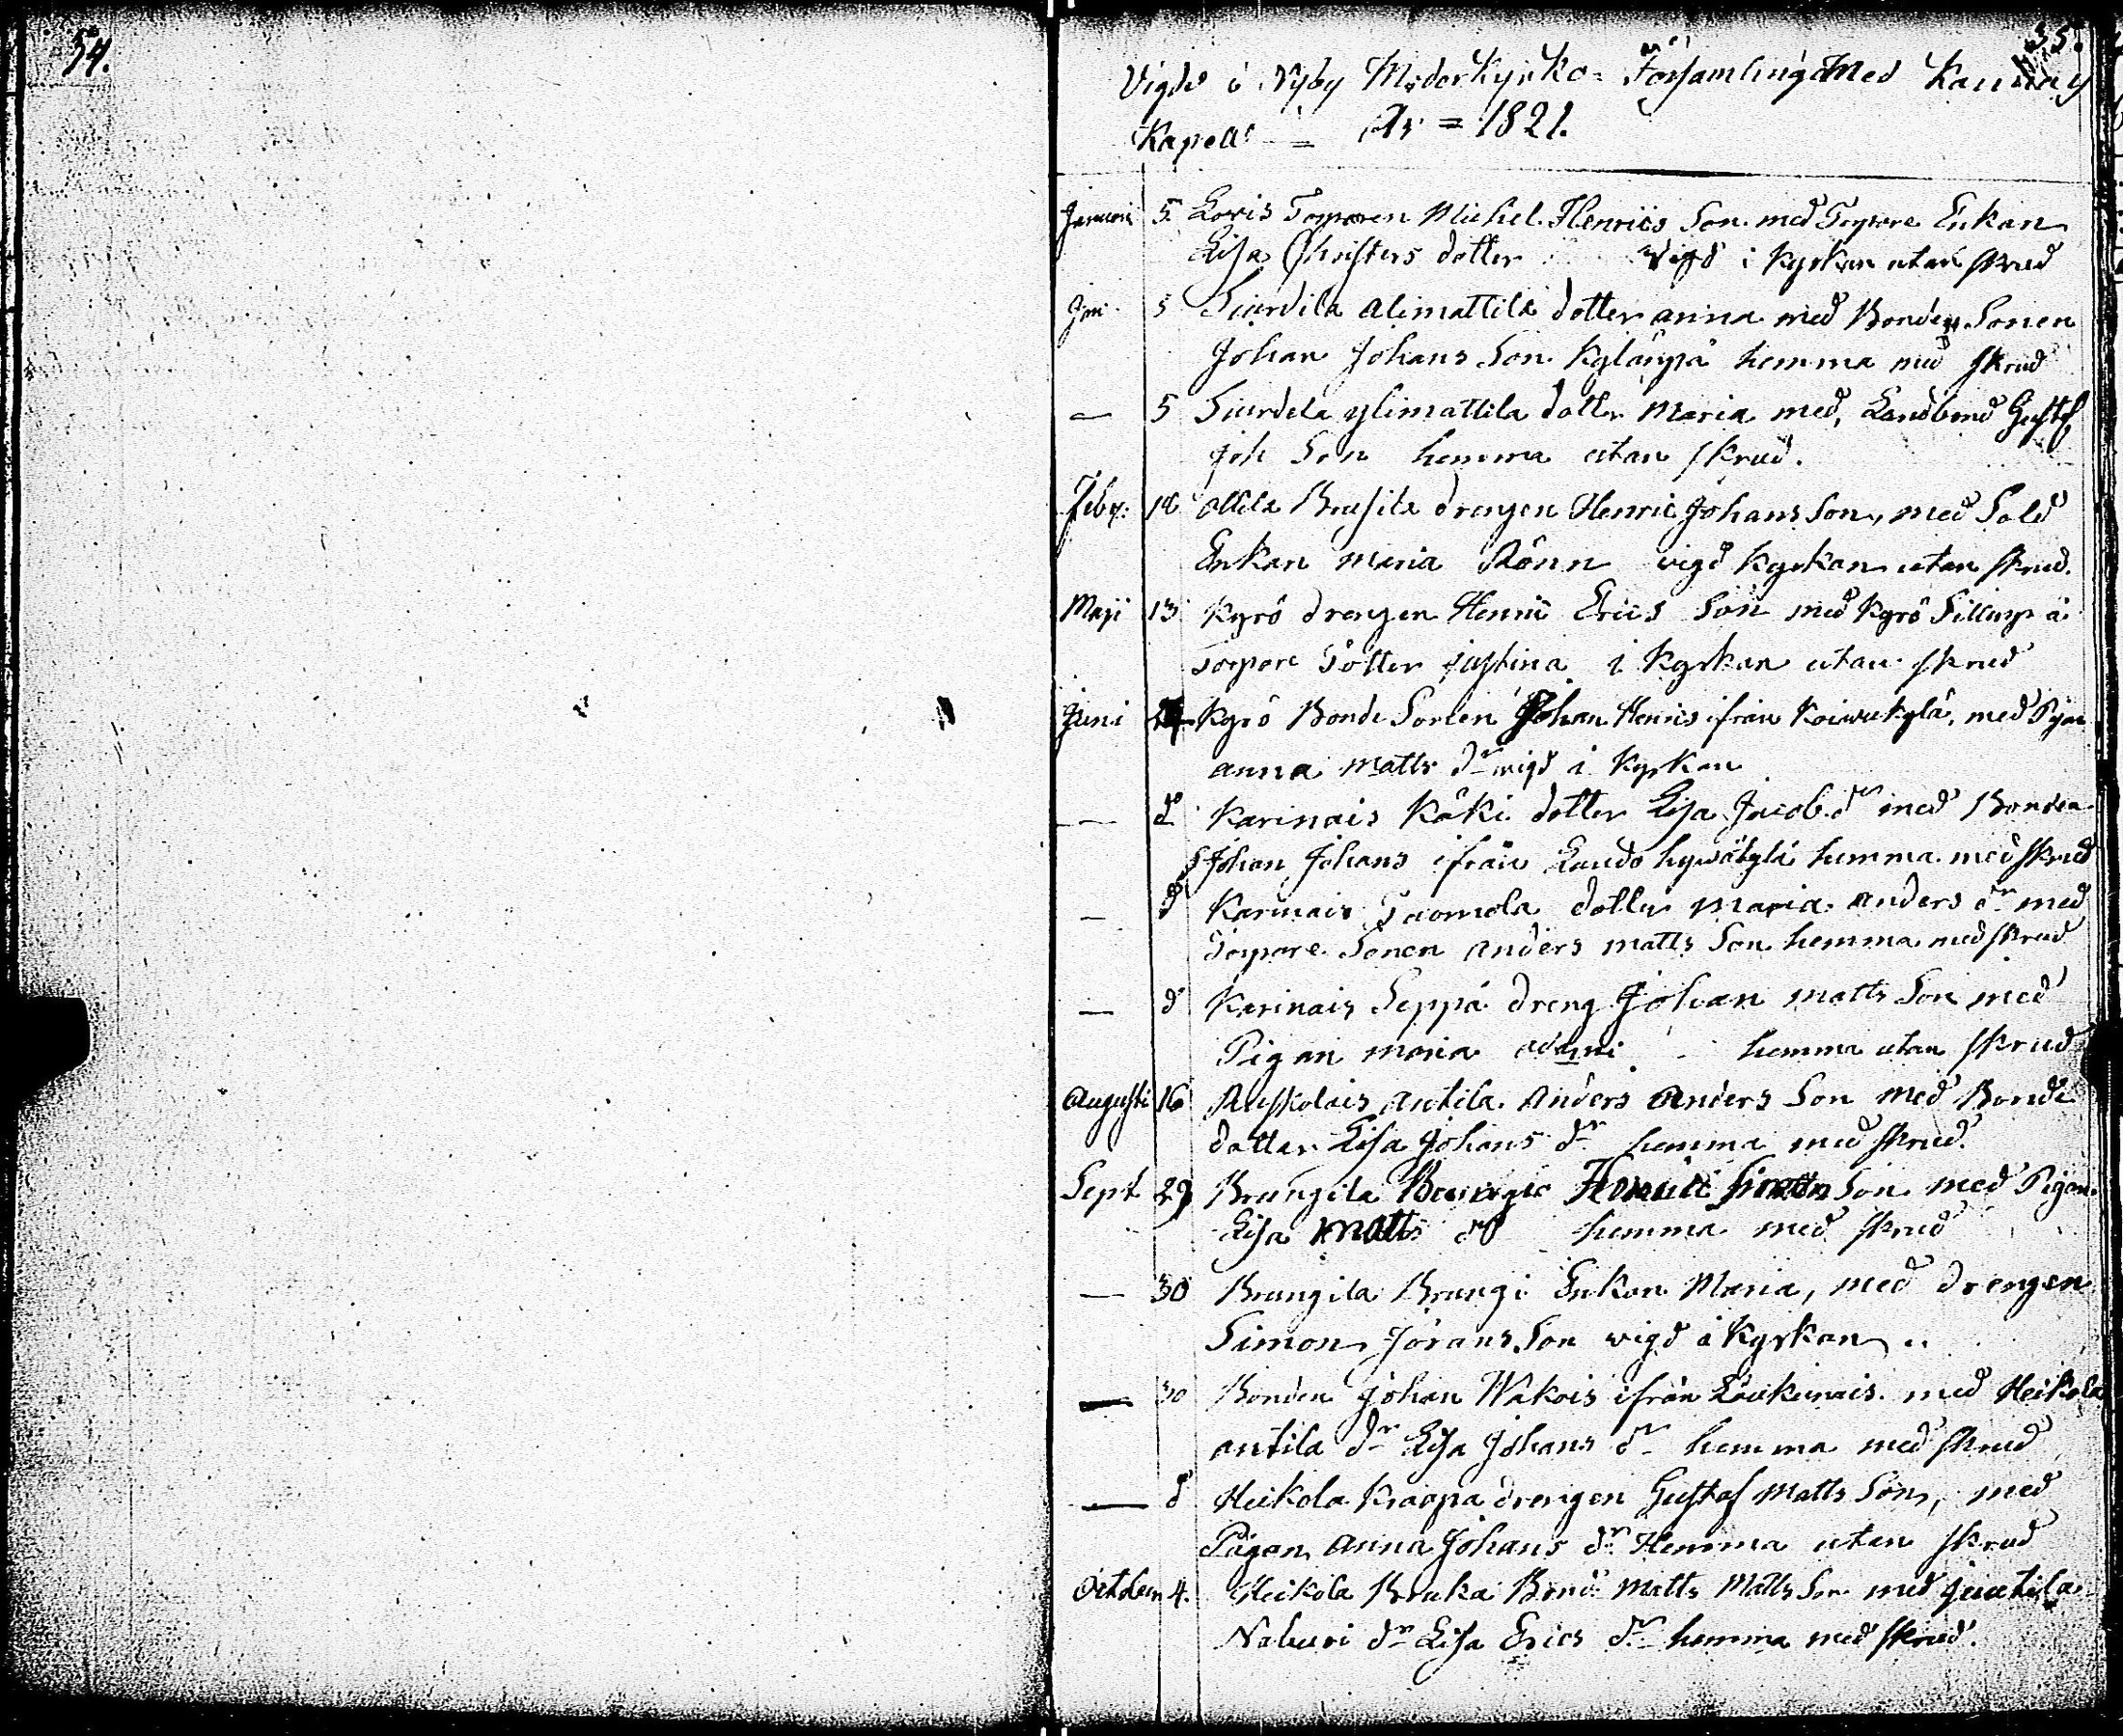 54.
55.
Vigde i Nyby Moderkyrko Församling Med Karinais
Kapell = År = 1821.
Januari 5. Loris Torparen Michel Henrics Son med Torpare Enkan
Lisa Christers dotter vigd i Kyrkan utan skrud
Jan 5 alimattila dotter anna med Bonde Sonen
Johan Johans Son hemma med skrud
— 5 ylimattila dotter Maria med, Landbond Gustf
Joh Son hemma utan skrud.
Feby: 18 drengen Henric Johans Son, med Sold
Enkan Maria Rönn vigd Kyrkan utan skrud.
Maji 13 Kyrö drengen Henric Erics Son med Kyrö
torpare dotter justina i Kyrkan utan skrud
Juni 24 Kyrö Bonde Sonen Johan Henrics ifrån Koiwukylä, med Pigan
anna Matts dr wigd i Kyrkan
— do Karinais Käki dotter Lisa Jacobs dr med Bonden
Johan Johans ifrån hemma med skrud
— d Karinais dotter Maria Anders dr med
Torpare Sonen Anders Matts Son hemma med skrud
— d Karinais Seppä dreng Johan Matts Son med
Pigan Maria hemma utan skrud
Augusti 16 Ruskolais Antila Anders Anders Son med Bonde
dotter Lisa Johans dr hemma med skrud.
Sept 29 Brungila Son med Pigan
Lisa Matts dr hemma med skrud
— 30 Brungila Brungi Enkan Maria, med drengen
Simon Jörans Son wigd i Kyrkan
— 30 Bonden Johan ifrån med Heikola
antila dr Lisa Johans dr hemma med skrud
— d Heikola drengen Gustaf Matts Son, med
Pigan Anna Johans dr Hemma utan skrud
October 4. Heikola Matts Matts Son med juutila
Naburi dr Lisa Erics dr hemma med skrud.